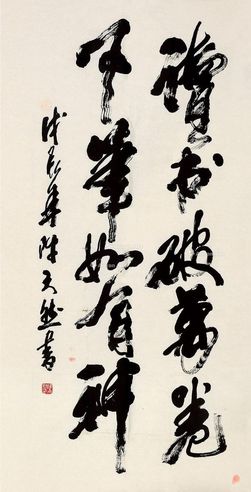 讀書破萬卷
下筆如有神
戊辰年陳天然書